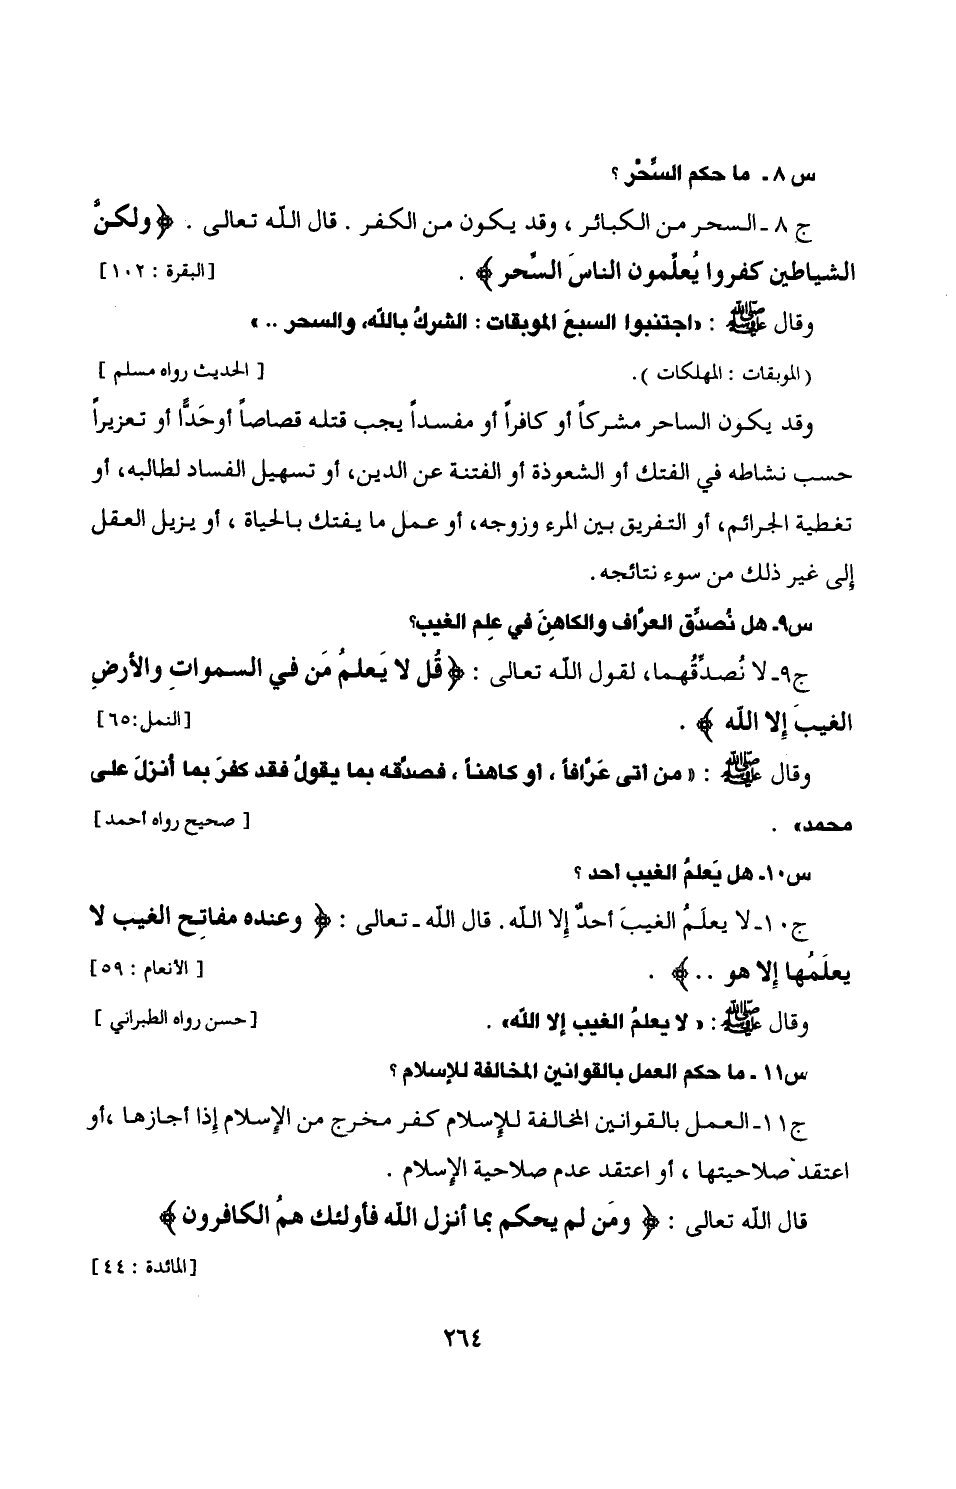 س٨ - ما حكم السِّحْر ؟
ج ٨ - السحر من الكبائر ، وقد يكون من الكفر . قال الله تعالى . ﴿ ولكنَّ
الشياطين كفروا يُعلِّمون الناسَ السِّحر ﴾ . [البقرة : ١٠٢]
وقال ﷺ : «اجتنبوا السبعَ الموبقات : الشركُ بالله، والسحر .. »
(الموبقات : المهلكات ). [ الحديث رواه مسلم ]
وقد يكون الساحر مشركاً أو كافراً أو مفسداً يجب قتله قصاصاً أوحَدًّا أو تعزيراً
حسب نشاطه في الفتك أو الشعوذة أو الفتنة عن الدين، أو تسهيل الفساد لطالبه، أو
تغطية الجرائم، أو التفريق بين المرء وزوجه، أو عمل ما يفتك بالحياة ، أو يزيل العقل
إلى غير ذلك من سوء نتائجه .
س٩- هل نُصدِّق العرَّاف والكاهنَ في علم الغيب؟
ج٩- لا نُصدِّقُهما، لقول الله تعالى : ﴿ قُل لا يَعلمُ مَن في السموات والأرضِ
الغيبَ إلا الله ﴾ . [النمل:٦٥]
وقال ﷺ : « من أتى عَرَّافاً ، أو كاهناً ، فصدَّقه بما يقولُ فقد كفرَ بما أنزلَ على
محمد» . [ صحيح رواه أحمد ]
س١٠- هل يَعلمُ الغيب أحد ؟
ج١٠- لا يعلَمُ الغيبَ أحدٌ إلا الله . قال الله - تعالى : ﴿ وعنده مفاتِح الغيب لا
يعلَمُها إلا هو .. ﴾ . [ الأنعام : ٥٩]
وقال ﷺ : « لا يعلمُ الغيب إلا الله» . [حسن رواه الطبراني ]
س١١ - ما حكم العمل بالقوانين المخالفة للإسلام ؟
ج١١- العمل بالقوانين المخالفة للإسلام كفر مخرج من الإسلام إذا أجازها ،أو
اعتقد صلاحيتها ، أو اعتقد عدم صلاحية الإسلام .
قال الله تعالى : ﴿ ومَن لم يحكم بما أنزل الله فأولئك همُ الكافرون ﴾
[المائدة : ٤٤]
٢٦٤